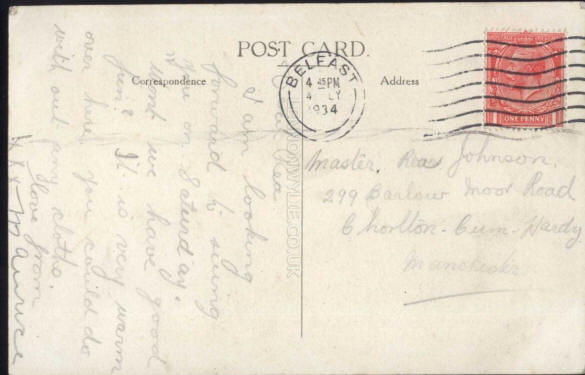 POST CARD.
Correspondence
Address
BELFAST
4 45PM
4 LY
1934
ONE PENNY
Dear Rex
I am looking
forward to seing
you on Saturday.
Wont we have good
fun? It is very warm
over here you could do
with out any cloths
love from
xxx Maurice
Master. Rex Johnson.
299 Barlow Moor Road
Chorlton-Cum-Hardy
Manchester